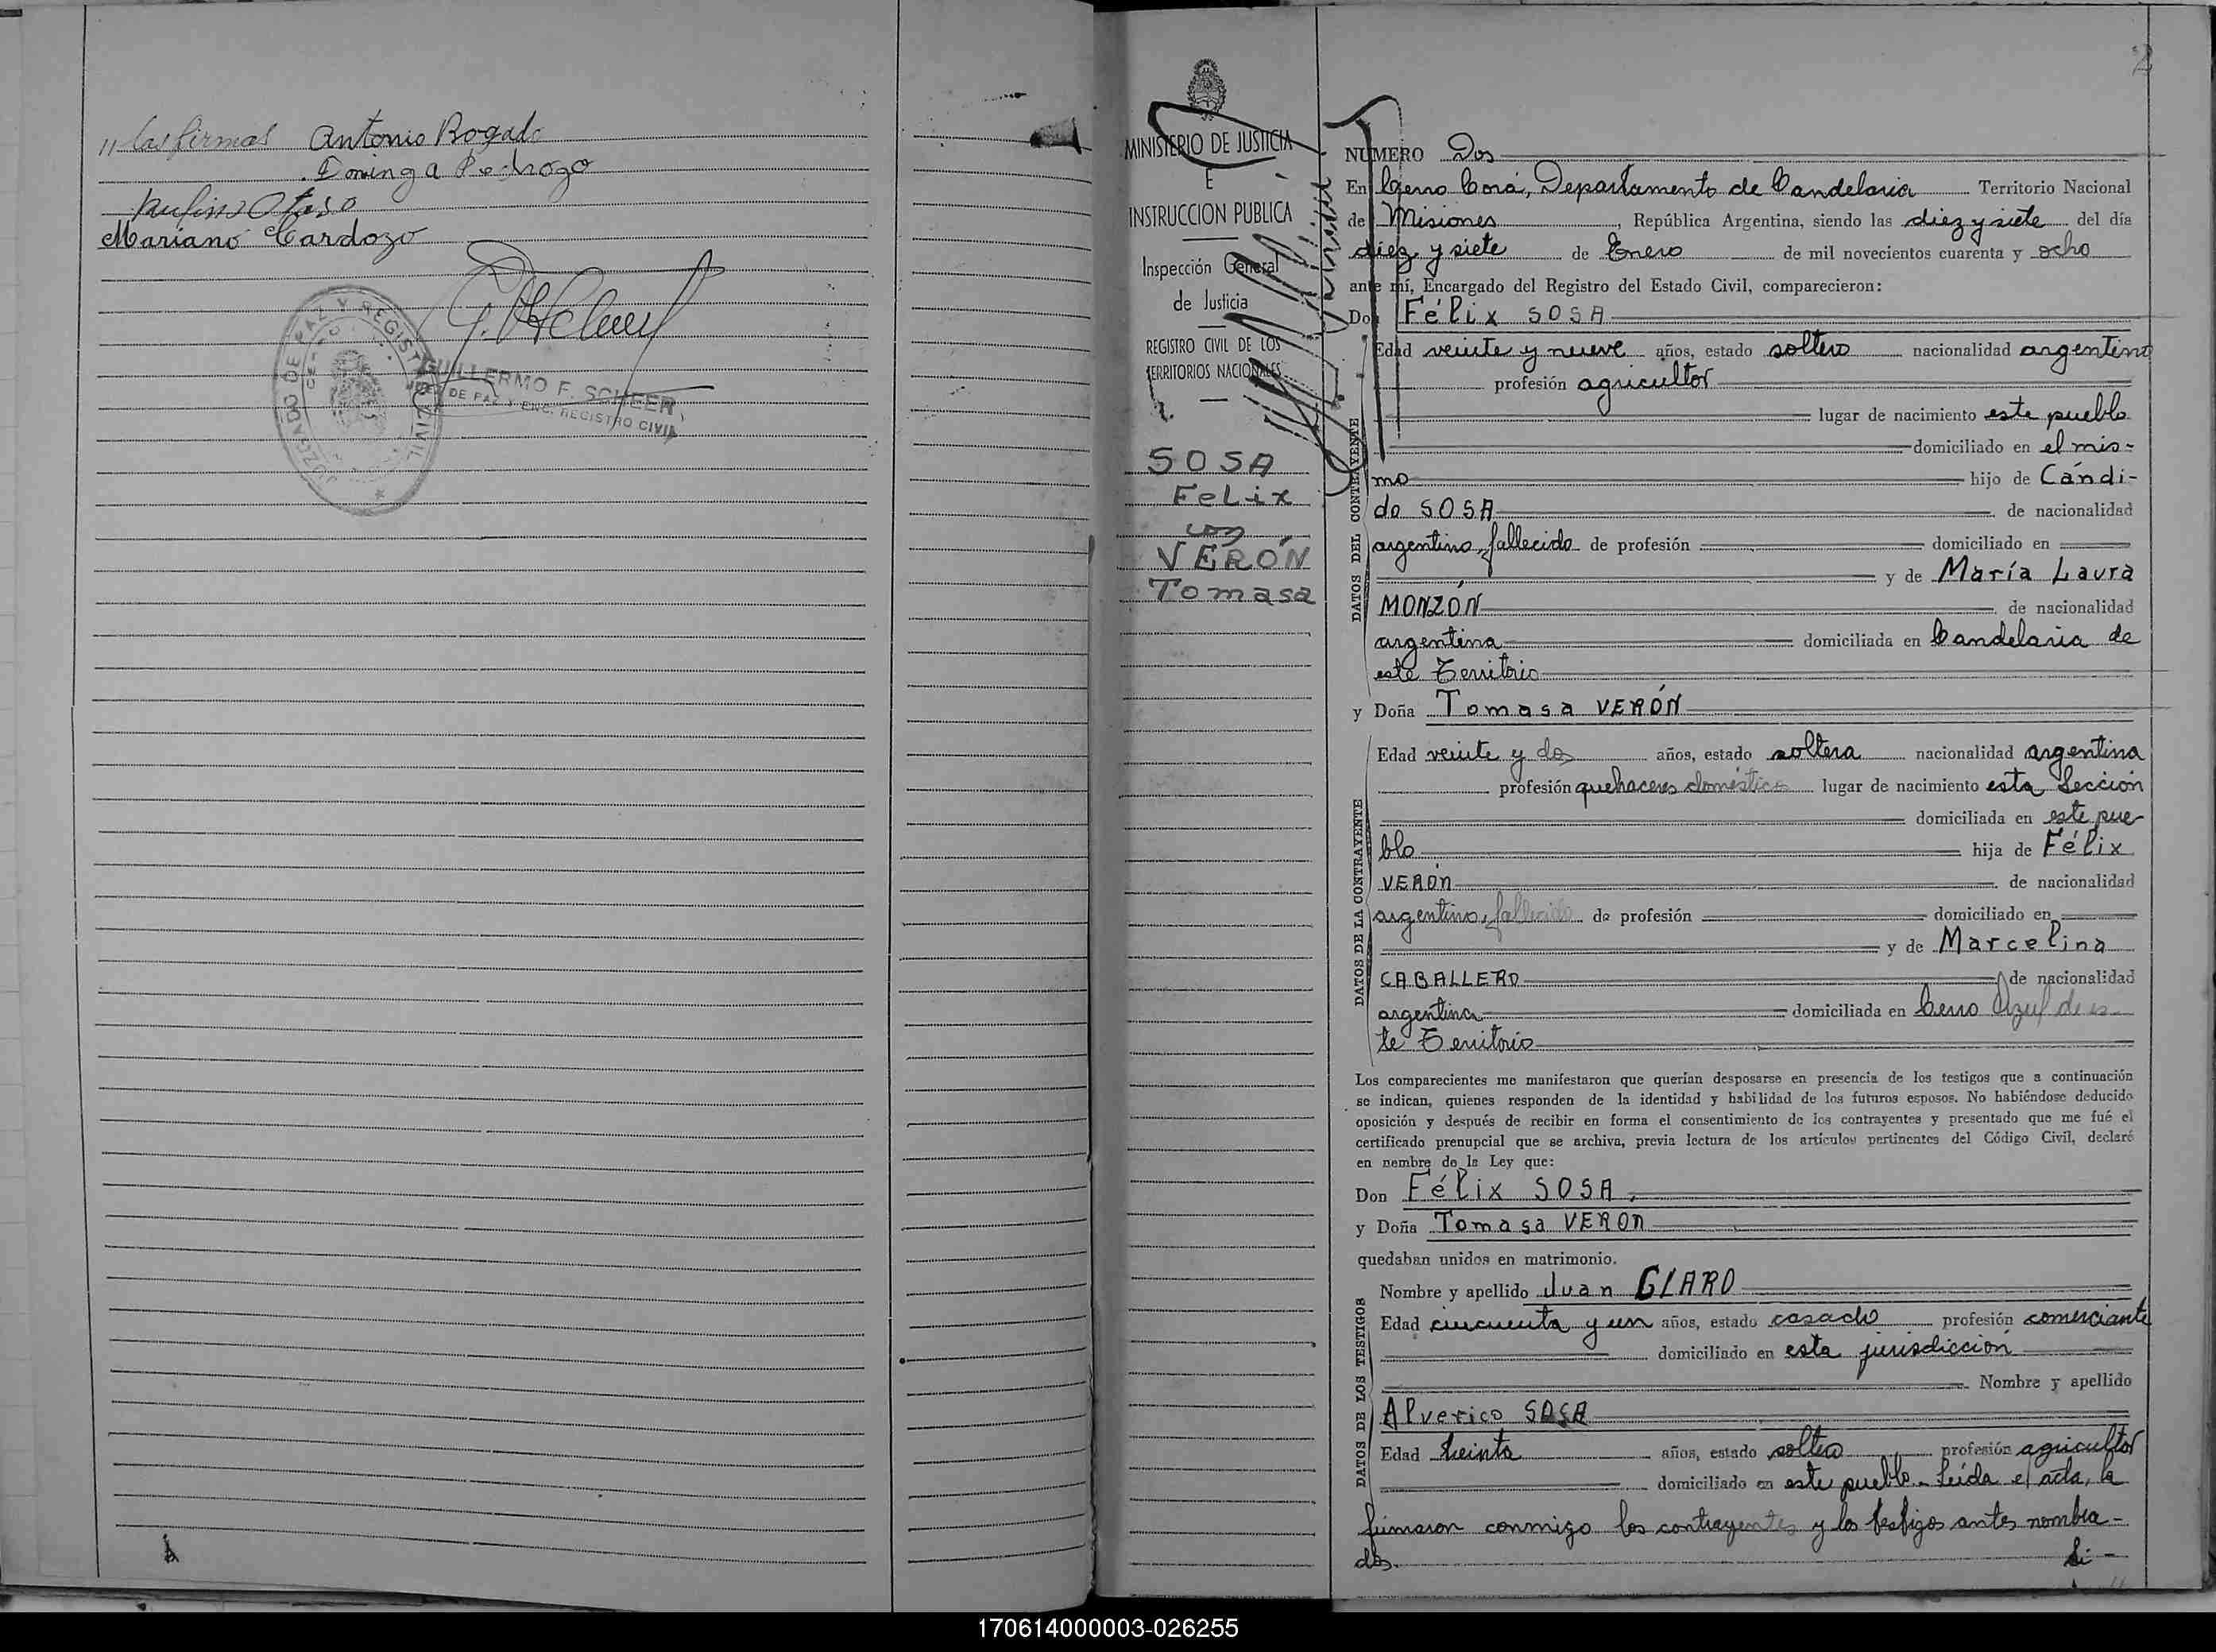 // las firmas Antonio Rogado
Dominga Pedrozo
Mariano Cardozo
JUZGADO DE PAZ Y REGISTRO CIVIL
GUILLERMO F. SCHEER
JUEZ DE PAZ Y ENC. REGISTRO CIVIL
2
MINISTERIO DE JUSTICIA
E
INSTRUCCION PUBLICA
Inspección General
de Justicia
REGISTRO CIVIL DE LOS
TERRITORIOS NACIONALES
SOSA
Felix
con
VERÓN
Tomasa
NUMERO Dos
En Cerro Corá, Departamento de Candelaria Territorio Nacional
de Misiones, República Argentina, siendo las diez y siete del día
diez y siete de Enero de mil novecientos cuarenta y ocho
ante mí, Encargado del Registro del Estado Civil, comparecieron:
Don Félix SOSA
DATOS DEL CONTRAYENTE
Edad veinte y nueve años, estado soltero nacionalidad argentino
profesión agricultor
lugar de nacimiento este pueblo
domiciliado en el mis-
mo hijo de Cándi-
do SOSA de nacionalidad
argentino, fallecido de profesión domiciliado en
y de María Laura
MONZÓN de nacionalidad
argentina domiciliada en Candelaria de
este Territorio
y Doña Tomasa VERÓN
DATOS DE LA CONTRAYENTE
Edad veinte y dos años, estado soltera nacionalidad argentina
profesión quehaceres domésticos lugar de nacimiento esta Sección
domiciliada en este pue-
blo hija de Félix
VERÓN de nacionalidad
argentino, fallecido de profesión domiciliado en
y de Marcelina
CABALLERO de nacionalidad
argentina domiciliada en Cerro Azul de es-
te Territorio
Los comparecientes me manifestaron que querían desposarse en presencia de los testigos que a continuación
se indican, quienes responden de la identidad y habilidad de los futuros esposos. No habiéndose deducido
oposición y después de recibir en forma el consentimiento de los contrayentes y presentado que me fué el
certificado prenupcial que se archiva, previa lectura de los artículos pertinentes del Código Civil, declaré
en nombre de la Ley que:
Don Félix SOSA
y Doña Tomasa VERON
quedaban unidos en matrimonio.
DATOS DE LOS TESTIGOS
Nombre y apellido Juan GLARO
Edad cincuenta y un años, estado casado profesión comerciante
domiciliado en esta jurisdicción
Nombre y apellido
Alverico SOSA
Edad treinta años, estado soltero profesión agricultor
domiciliado en este pueblo. Leída el acta, la
firmaron conmigo los contrayentes y los testigos antes nombra-
dos.
170614000003-026255